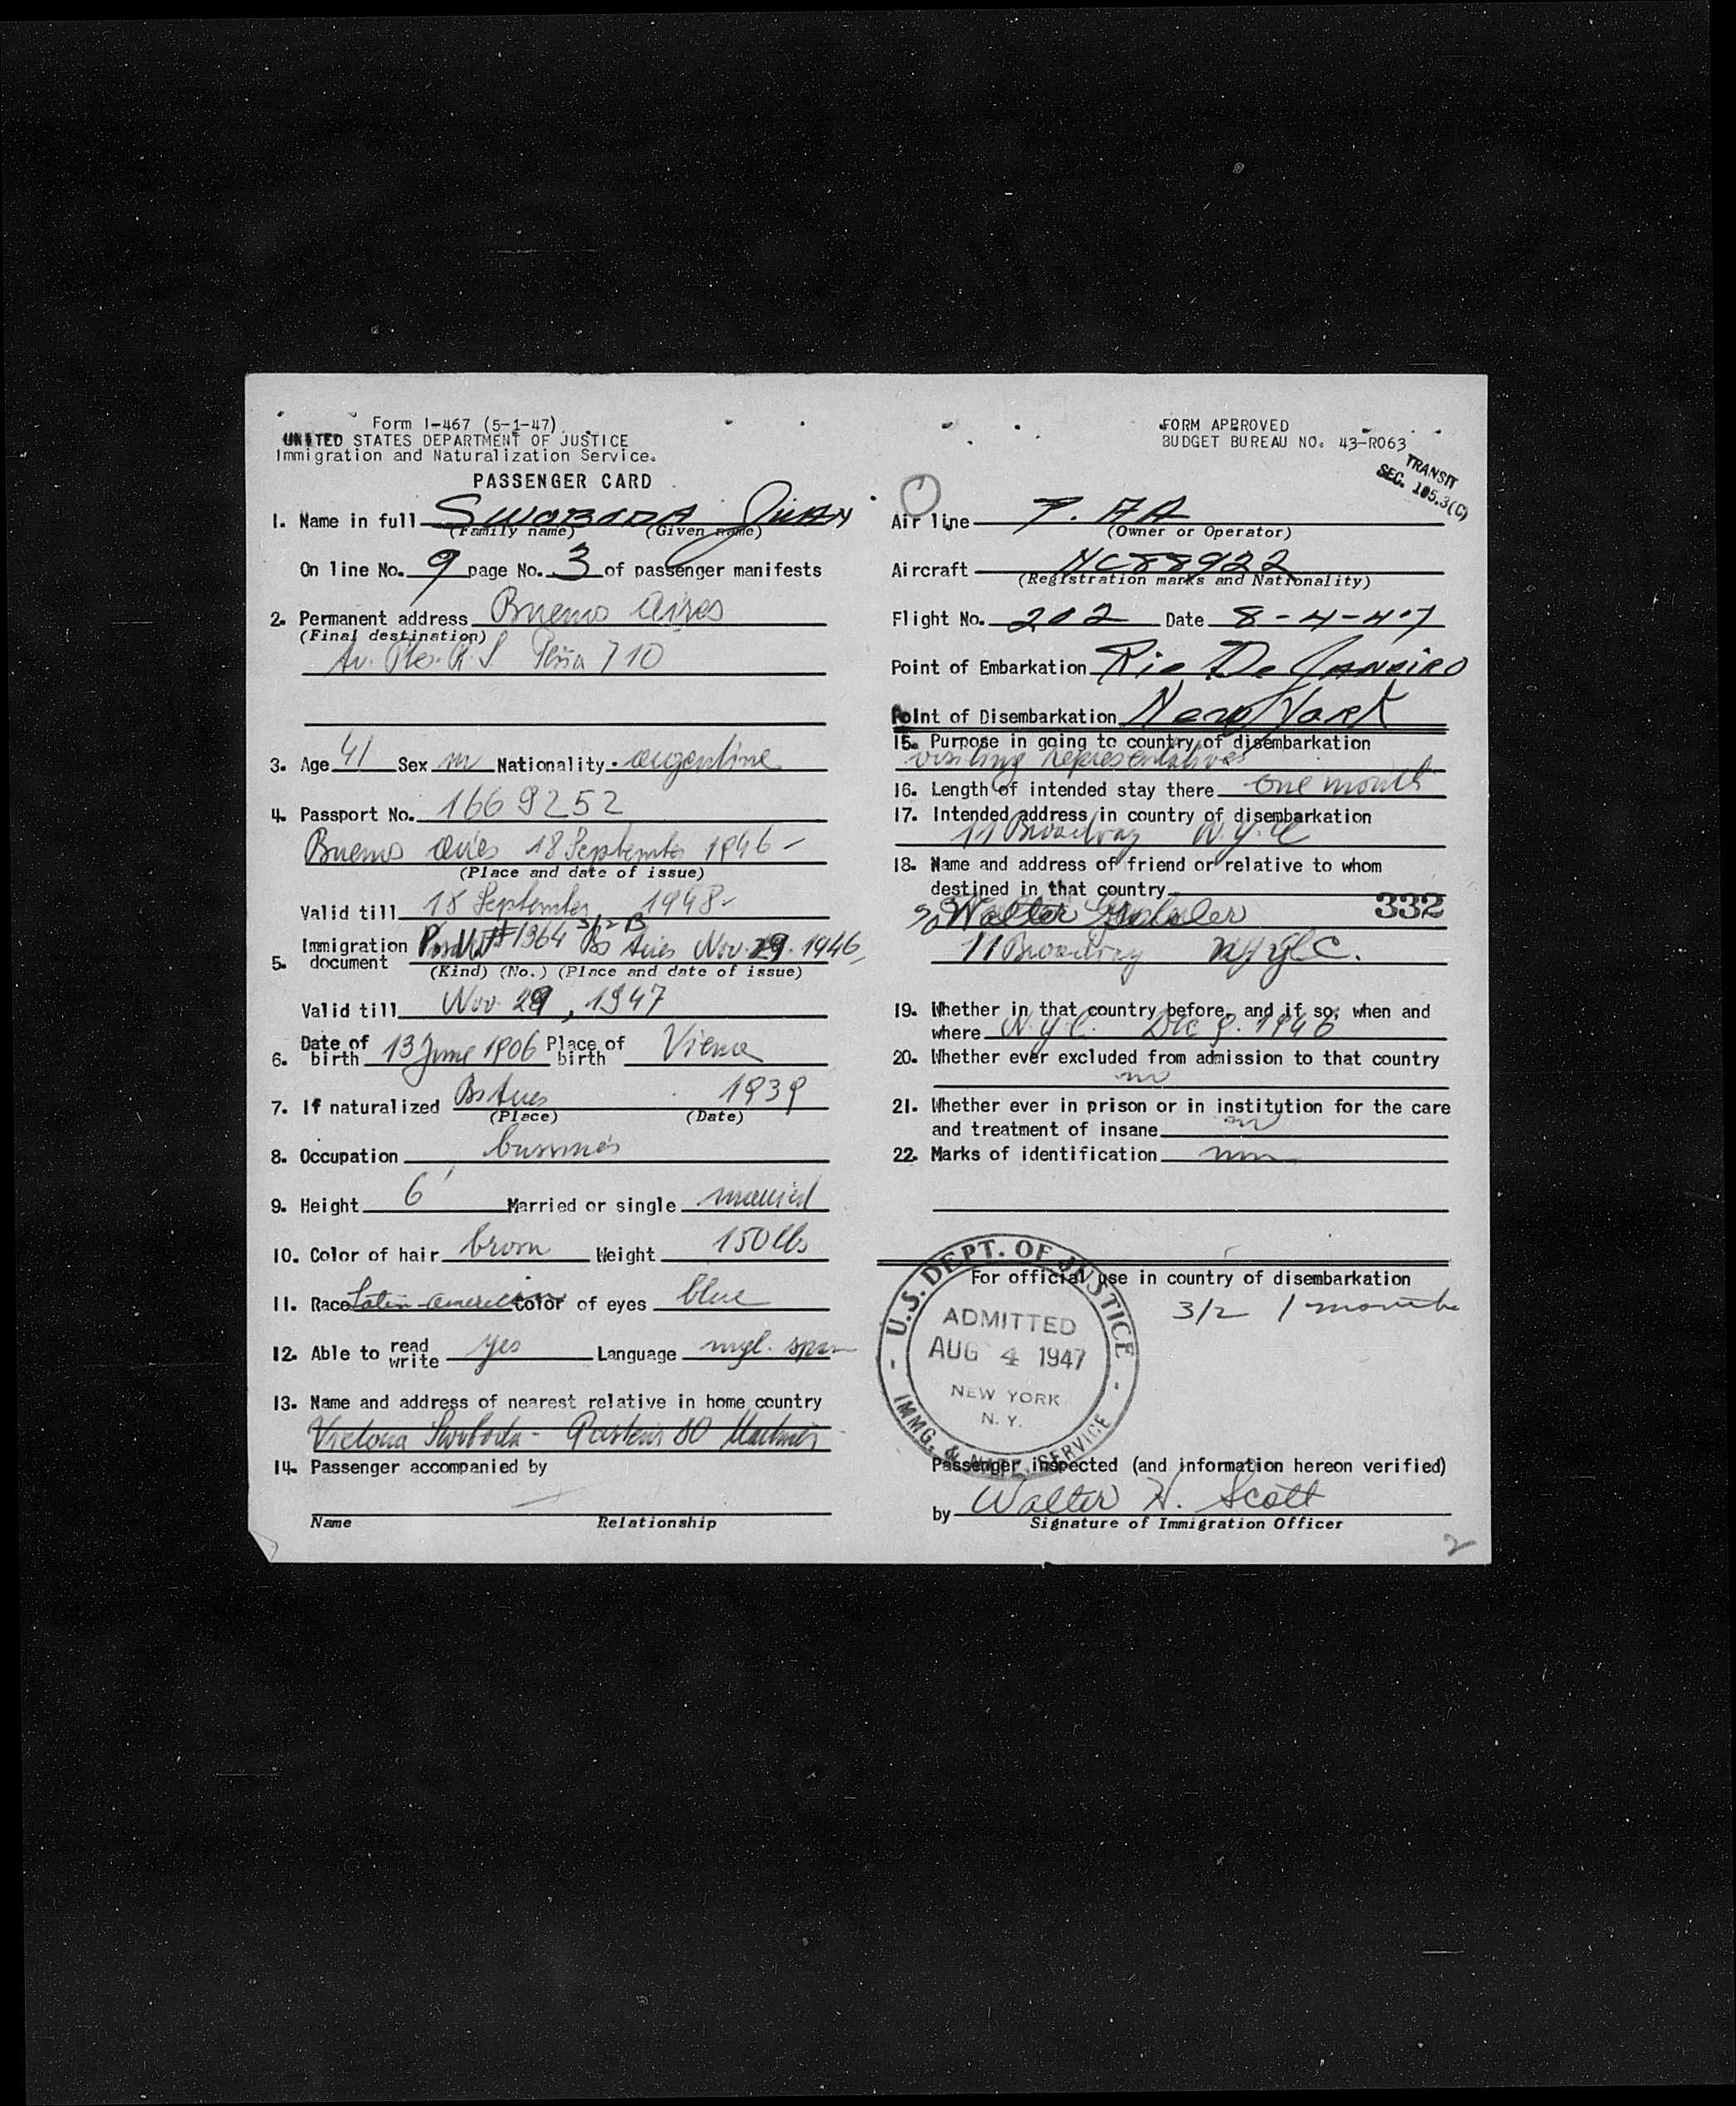 Form I-467 (5-1-47)
UNITED STATES DEPARTMENT OF JUSTICE
Immigration and Naturalization Service.
PASSENGER CARD
1. Name in full SWOBODA JUAN
(Family name) (Given name)
On line No. 9 page No. 3 of passenger manifests
2. Permanent address Buenos Aires
(Final destination)
Av. Pte. R. S. Peña 710
3. Age 41 Sex m Nationality argentine
4. Passport No. 1669252
Buenos Aires 18 September 1946 -
(Place and date of issue)
Valid till 18 September 1948 -
3/2 B
Immigration
5. document #1364 Bs Aires Nov. 29. 1946
(Kind) (No.) (Place and date of issue)
Valid till Nov. 29, 1947
6. Date of birth 13 June 1906 Place of birth Viena
7. If naturalized Bs Aires 1939
(Place) (Date)
8. Occupation bussines
9. Height 6' Married or single married
10. Color of hair brown Weight 150 lbs
11. Race Latin-American Color of eyes blue
12. Able to read write yes Language engl. span
13. Name and address of nearest relative in home country
Victoria Swoboda - 80
14. Passenger accompanied by
Name Relationship
FORM APPROVED
BUDGET BUREAU NO. 43-R063
TRANSIT
SEC. 105.3(C)
Air line P.AA
(Owner or Operator)
Aircraft NC88922
(Registration marks and Nationality)
Flight No. 202 Date 8-4-47
Point of Embarkation Rio De Janeiro
Point of Disembarkation New York
15. Purpose in going to country of disembarkation
visiting representatives
16. Length of intended stay there one month
17. Intended address in country of disembarkation
11 Broadway N.Y.C
18. Name and address of friend or relative to whom
destined in that country
c/o Walter 332
11 Broadway N.Y.C.
19. Whether in that country before, and if so, when and
where N.Y.C. Dec 9. 1946
20. Whether ever excluded from admission to that country
no
21. Whether ever in prison or in institution for the care
and treatment of insane no
22. Marks of identification
For official use in country of disembarkation
3/2 1 month
U.S. DEPT. OF JUSTICE
ADMITTED
AUG 4 1947
NEW YORK
N. Y.
IMMG. & NATZ. SERVICE
Passenger inspected (and information hereon verified)
by Walter H. Scott
Signature of Immigration Officer
2